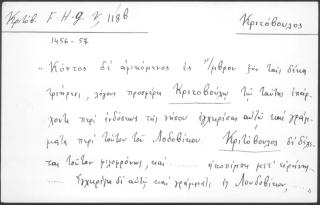 Κριτόβ. F.H.G V, 118b
Κριτόβουλος
1456-57
"Κόντος δὲ ἀφικόμενος ἐς Ἴμβρον ξὺν ταῖς δέκα
τριήρεσι, λόγους προσφέρει Κριτοβούλῳ τῷ ταύτης ἐπάρ-
χοντι περὶ ἐνδόσεως τῆς νήσου ἐγχειρίσας αὐτῷ καὶ γράμ-
ματα περὶ τούτου τοῦ Λοδοβίκου. Κριτόβουλος δὲ δέχε-
ται τοῦτον φιλοφρόνως, καὶ ....... ἀποπέμπει μετ' εἰρήνης...
....... Ἐγχειρίζει δ' αὐτῷ καὶ γράμματα ἐς Λονδοβίκον,....."